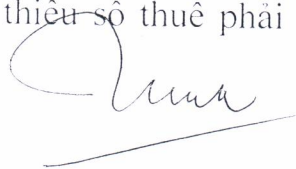 thiếu số thuế phải